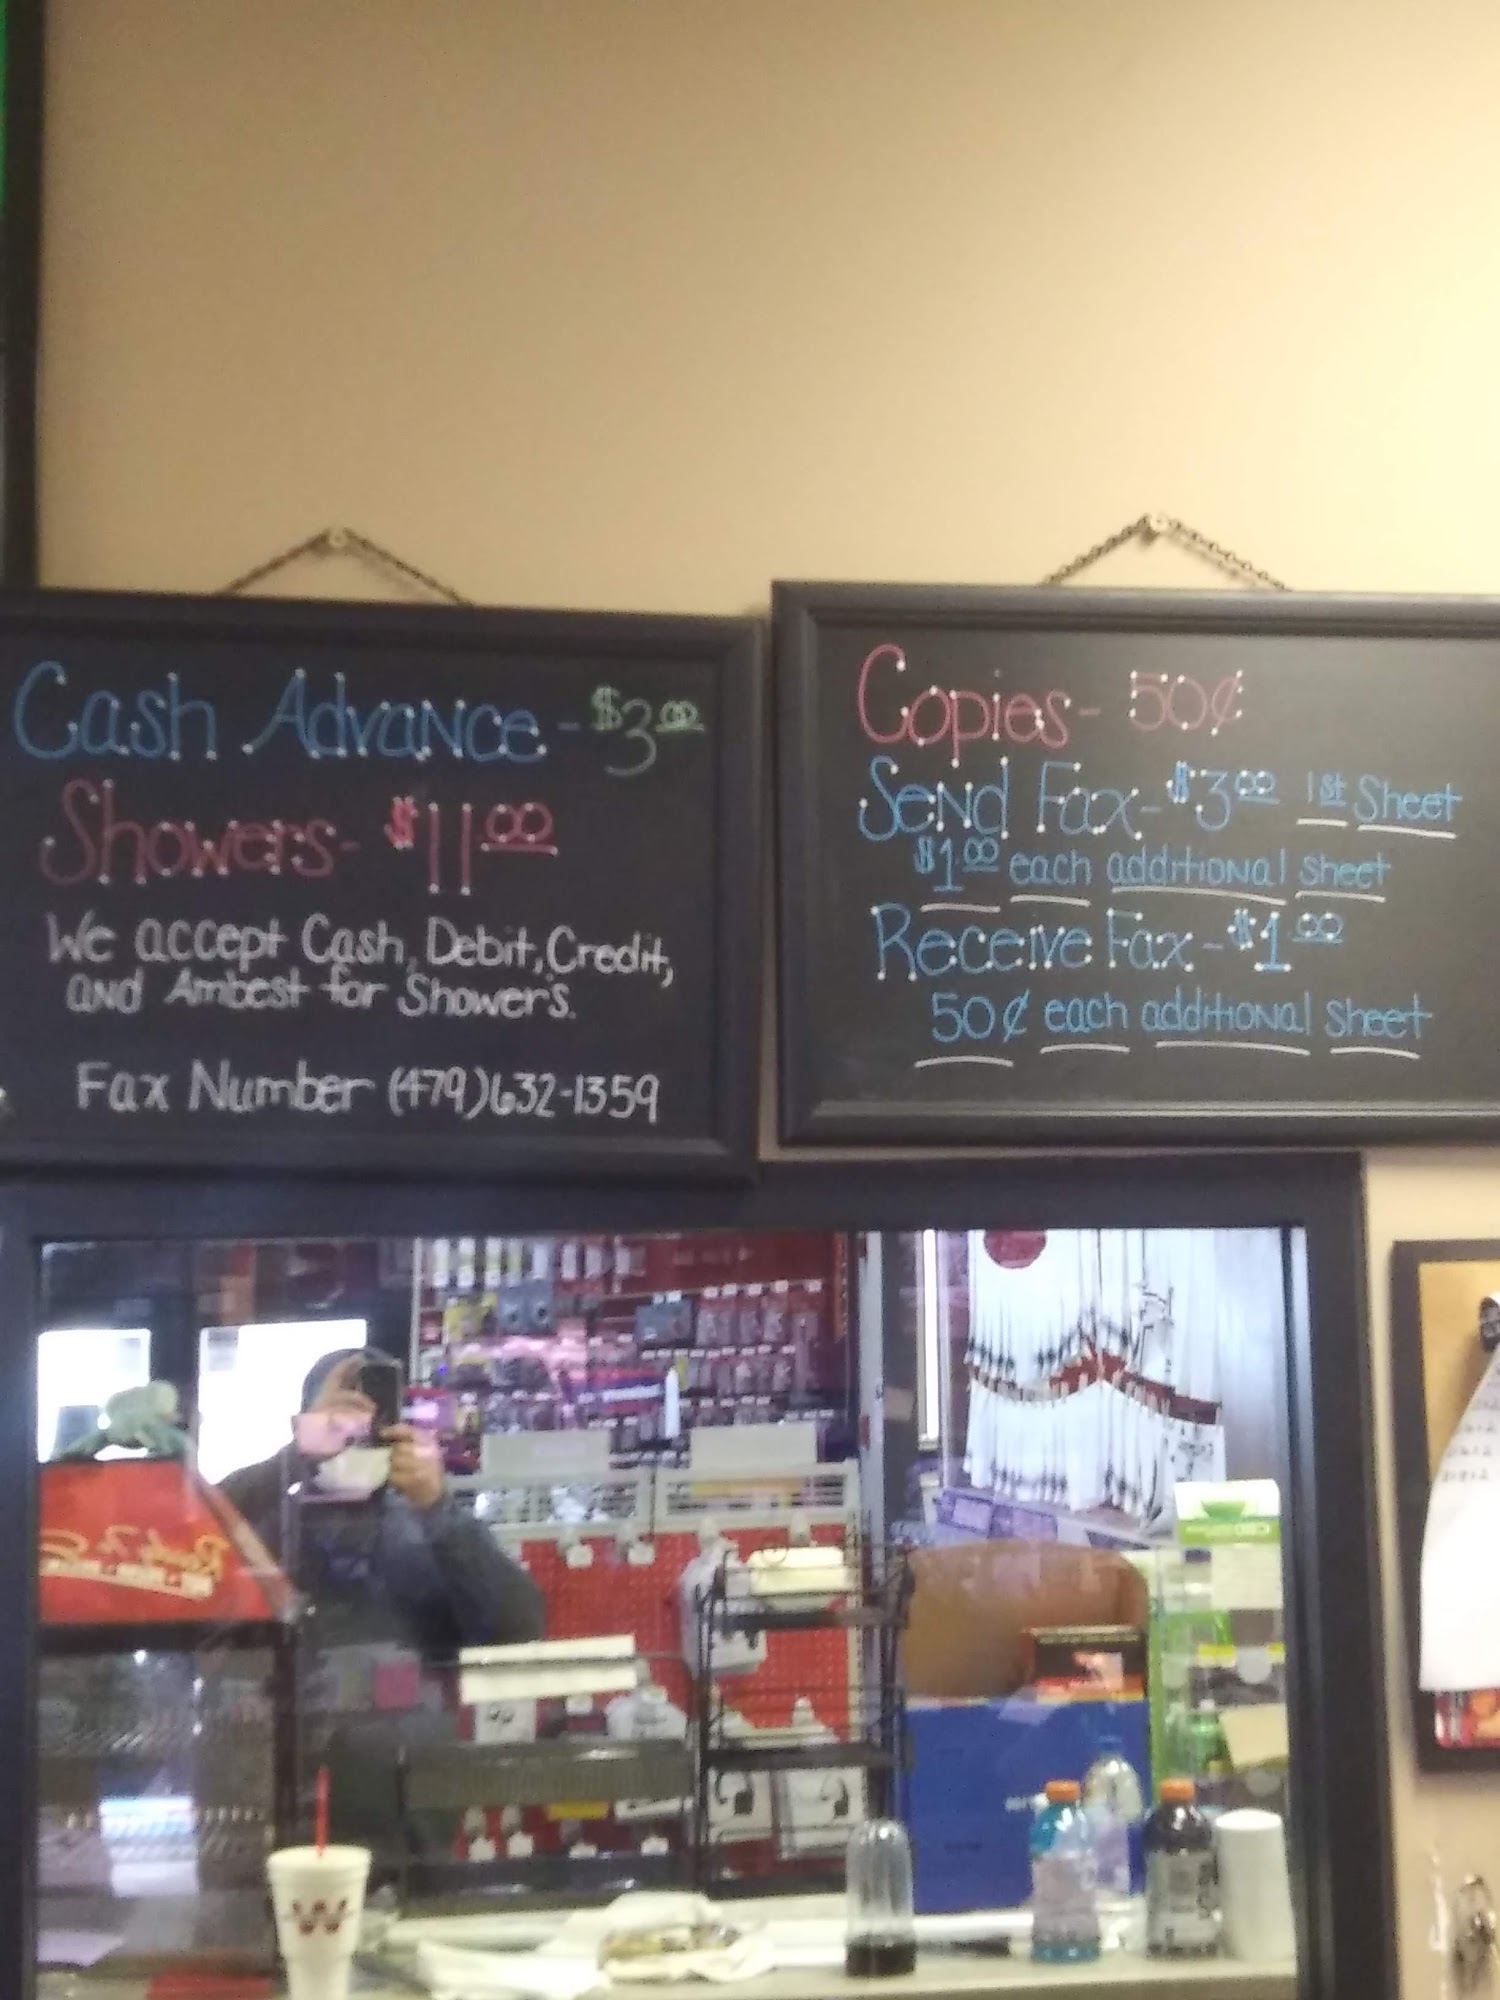 Cash Advance - $3.00
Showers - $11.00
We accept Cash, Debit, Credit,
and Ambest for Shower's.
Fax Number (479)632-1359
Copies - 50¢
Send Fax - $3.00 1st Sheet
$1.00 each additional sheet
Receive Fax - $1.00
50¢ each additional sheet
Ready To Go
CBD
W